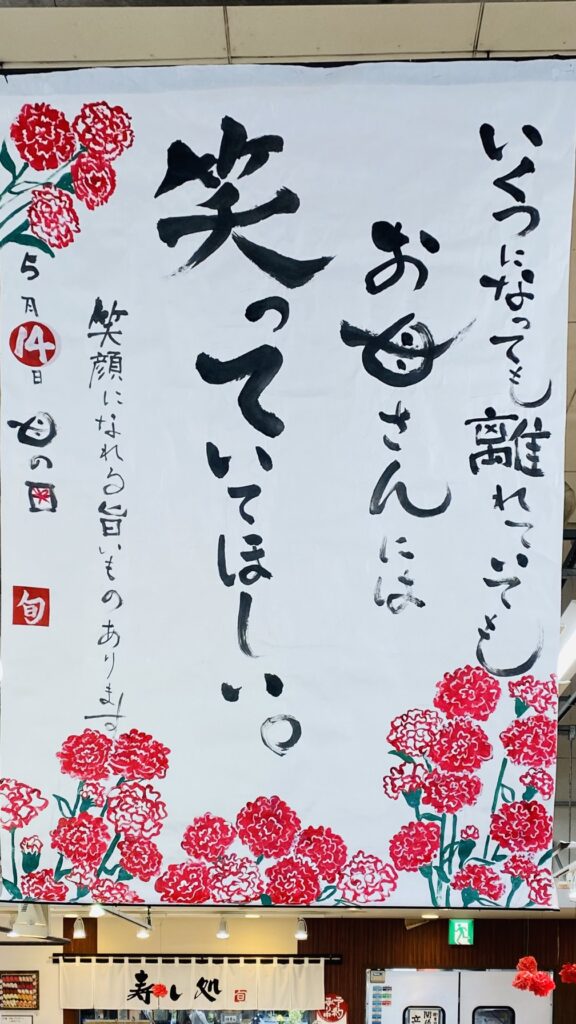 いくつになっても離れていても
お母さんには
笑っていてほしい。
笑顔になれる旨いものあります
5月14日 母の日
旬
寿し処
旬